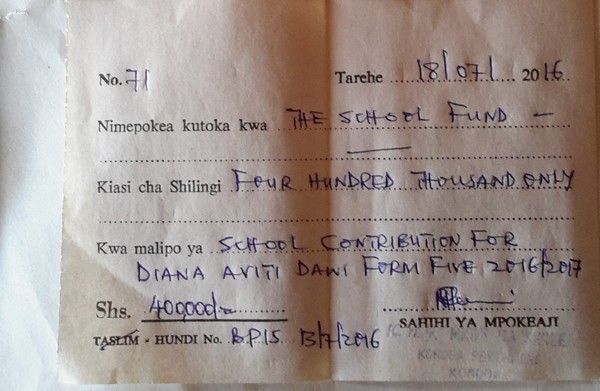 No. 71 Tarehe 18/07/ 2016
Nimepokea kutoka kwa THE SCHOOL FUND —
Kiasi cha Shilingi FOUR HUNDRED THOUSAND ONLY
Kwa malipo ya SCHOOL CONTRIBUTION FOR
DIANA AVITI DAWI FORM FIVE 2016/2017
Shs. 400,000/=
SAHIHI YA MPOKEAJI
TASLIM - HUNDI No. B.P.I.S 13/7/2016
KONDOA
KONDOA